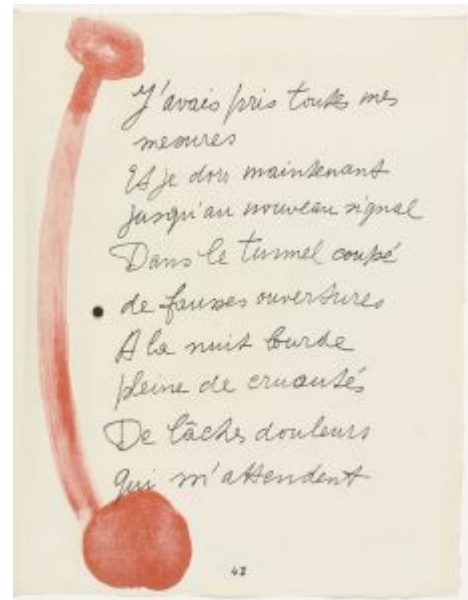 J'avais pris toutes mes
mesures
Et je dors maintenant
jusqu'au nouveau signal
Dans le tunnel coupé
de fausses ouvertures
A la nuit lourde
pleine de cruautés
De lâches douleurs
qui m'attendent
43